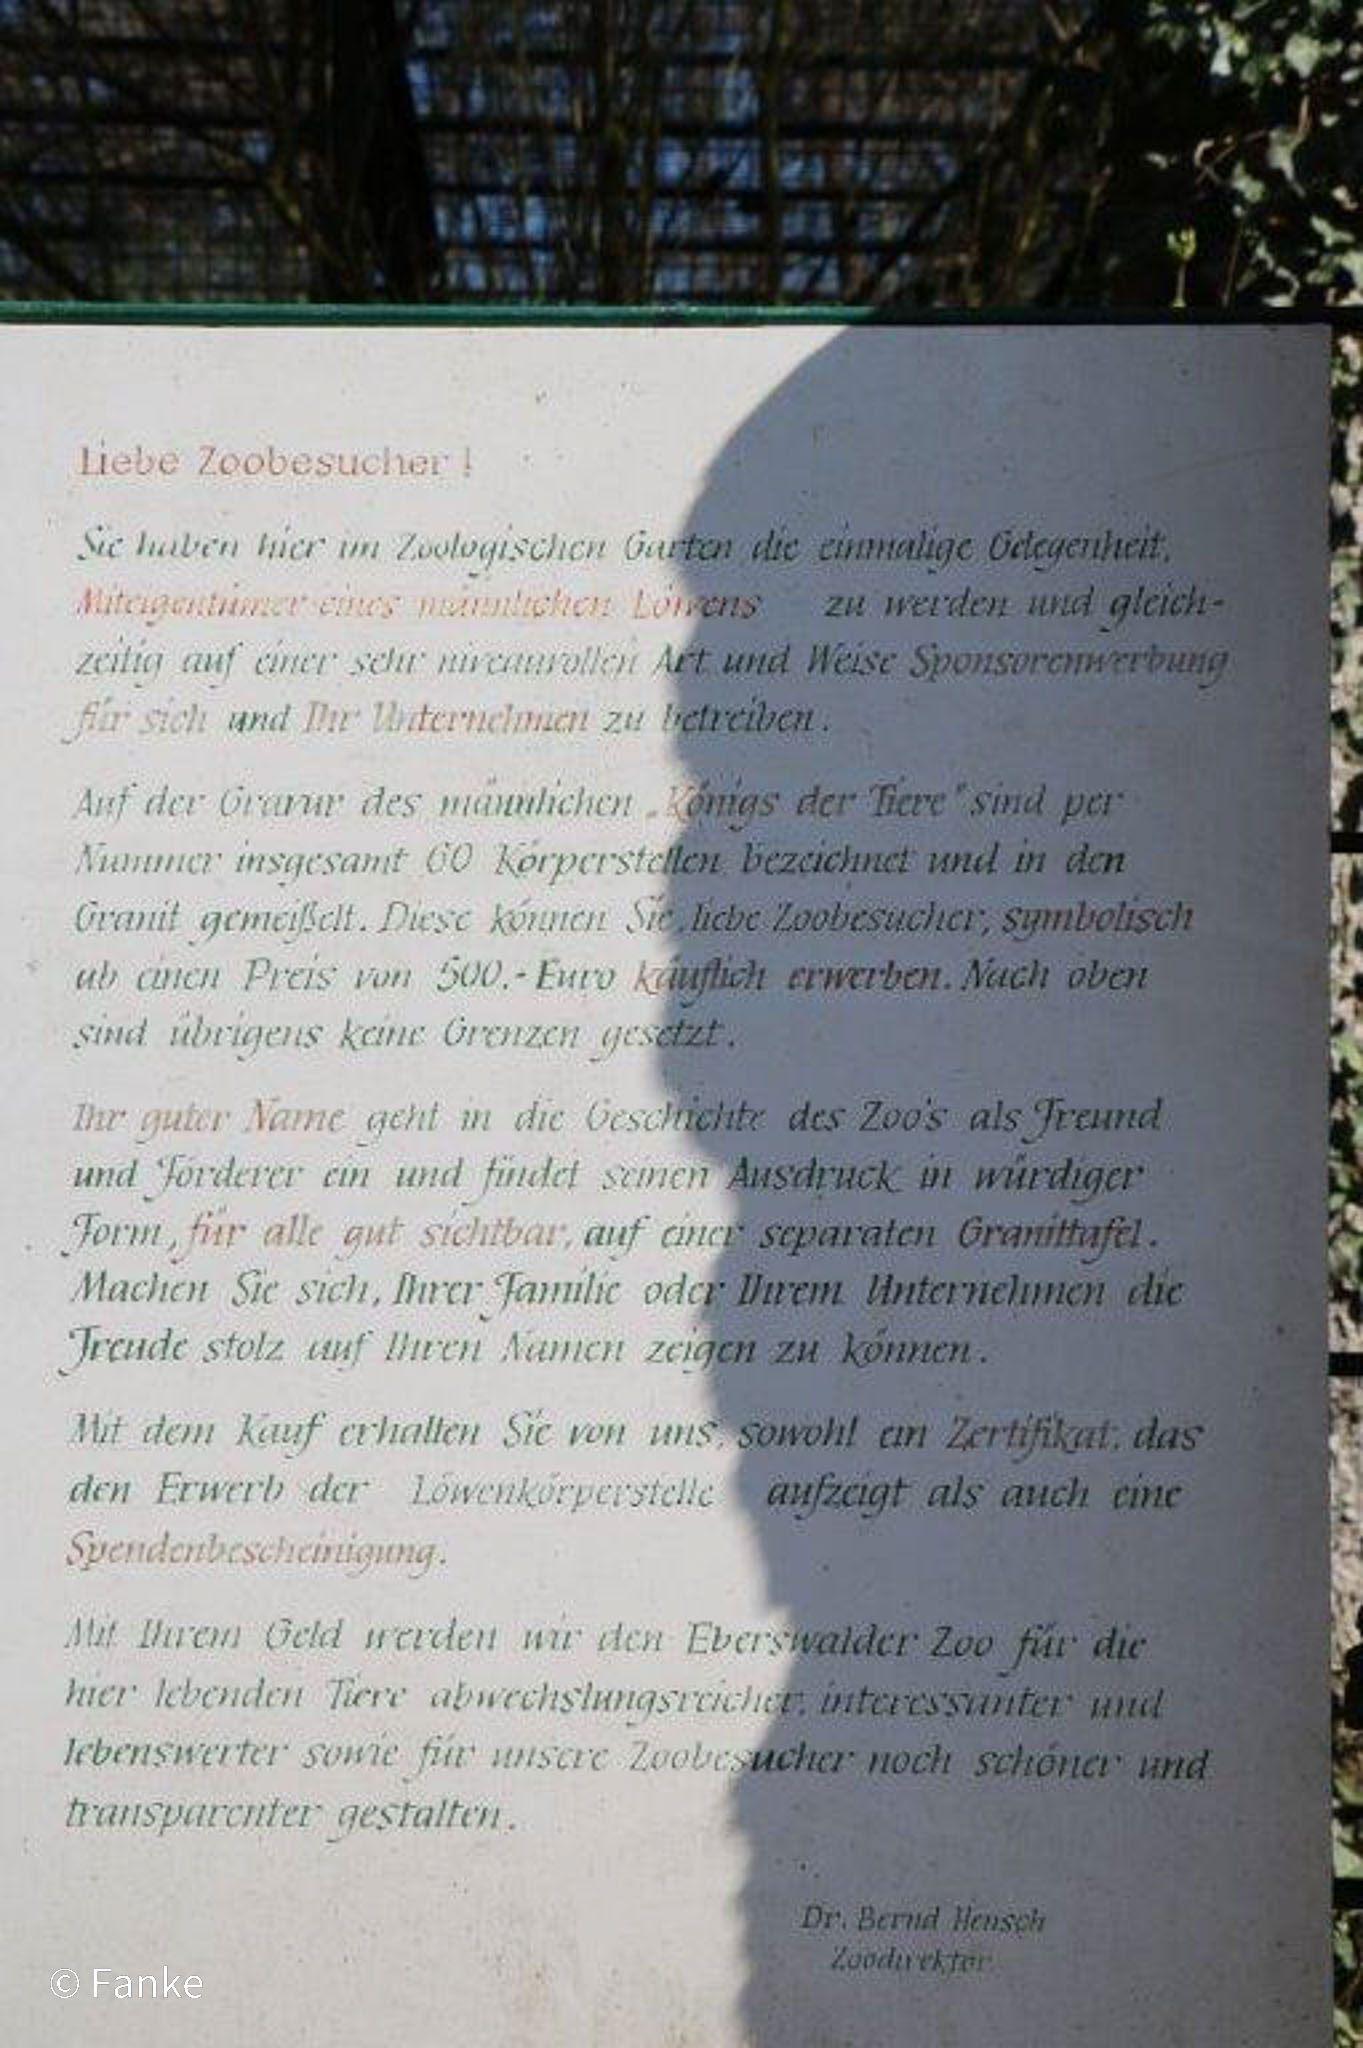 Liebe Zoobesucher!
Sie haben hier im Zoologischen Garten die einmalige Gelegenheit,
Miteigentümer eines männlichen Löwens zu werden und gleich-
zeitig auf einer sehr niveauvollen Art und Weise Sponsorenwerbung
für sich und Ihr Unternehmen zu betreiben.
Auf der Gravur des männlichen „Königs der Tiere" sind per
Nummer insgesamt 60 Körperstellen bezeichnet und in den
Granit gemeißelt. Diese können Sie, liebe Zoobesucher, symbolisch
ab einen Preis von 500.- Euro käuflich erwerben. Nach oben
sind übrigens keine Grenzen gesetzt.
Ihr guter Name geht in die Geschichte des Zoo's als Freund
und Förderer ein und findet seinen Ausdruck in würdiger
Form, für alle gut sichtbar, auf einer separaten Granittafel.
Machen Sie sich, Ihrer Familie oder Ihrem Unternehmen die
Freude stolz auf Ihren Namen zeigen zu können.
Mit dem Kauf erhalten Sie von uns, sowohl ein Zertifikat, das
den Erwerb der Löwenkörperstelle aufzeigt als auch eine
Spendenbescheinigung.
Mit Ihrem Geld werden wir den Eberswalder Zoo für die
hier lebenden Tiere abwechslungsreicher, interessanter und
lebenswerter sowie für unsere Zoobesucher noch schöner und
transparenter gestalten.
Dr. Bernd Hensch
Zoodirektor
© Fanke